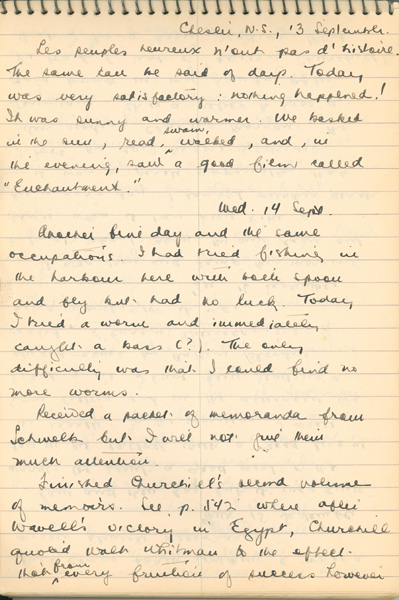 Chester, N.S., 13 September.
Les peuples heureux n'ont pas d'histoire.
The same can be said of days. Today
was very satisfactory: nothing happened!
It was sunny and warmer. We basked
in the sun, read, swam, walked, and, in
the evening, saw a good film called
"Enchantment."
Wed. 14 Sept.
Another fine day and the same
occupations. I had tried fishing in
the harbour here with both spoon
and fly but had no luck. Today
I tried a worm and immediately
caught a bass (?). The only
difficulty was that I could find no
more worms.
Received a packet of memoranda from
but I will not give them
much attention.
Finished Churchill's second volume
of memoirs. See p. 542 where after
Wavell's victory in Egypt, Churchill
quoted Walt Whitman to the effect
that from every fruition of success however